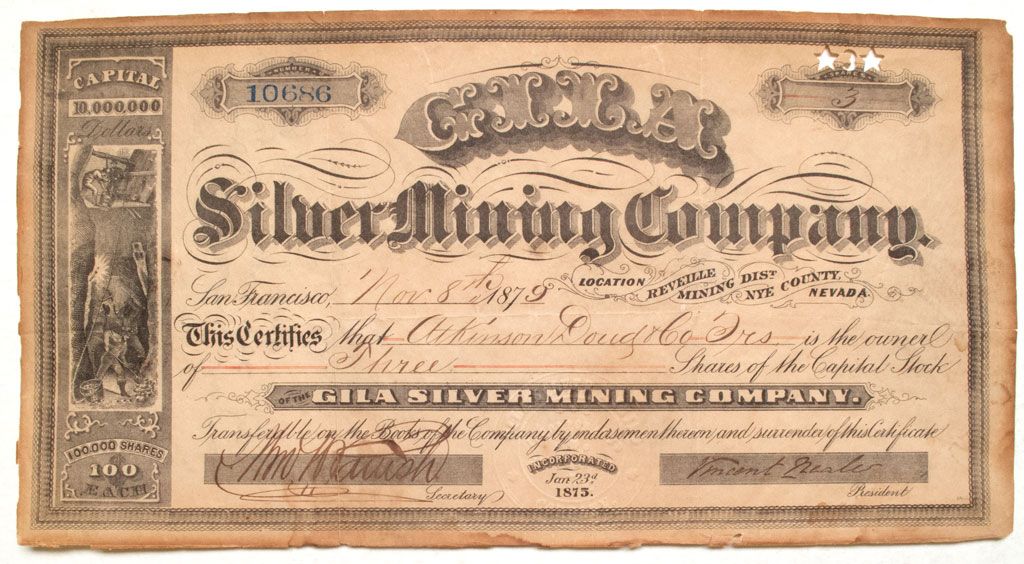 CAPITAL
10,000,000
Dollars
NUMBER
10686
3
SHARES
3
GILA
Silver Mining Company.
LOCATION REVEILLE MINING DIST. NYE COUNTY. NEVADA.
San Francisco, Nov 8th 1879
This Certifies that Atkinson & Co Trs is the owner
of Three Shares of the Capital Stock
OF THE GILA SILVER MINING COMPANY.
Transferable on the Books of the Company by endorsement thereon and surrender of this Certificate
100.000 SHARES
100
EACH
Secretary
INCORPORATED
Jan 23d
1873.
Vincent
President